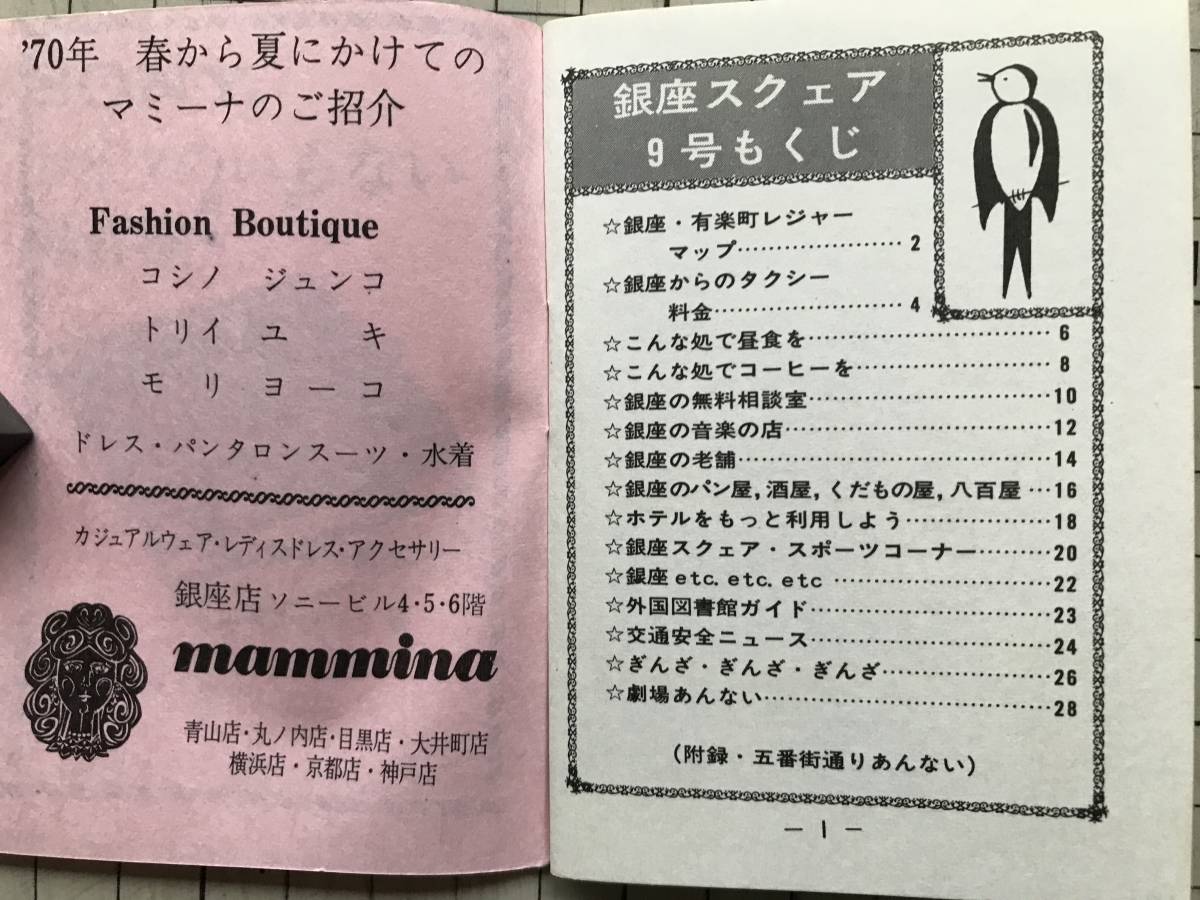 '70年 春から夏にかけての
マミーナのご紹介
Fashion Boutique
コシノ ジュンコ
トリイ ユキ
モリ ヨーコ
ドレス・パンタロンスーツ・水着
カジュアルウェア・レディスドレス・アクセサリー
銀座店 ソニービル4・5・6階
mammina
青山店・丸ノ内店・目黒店・大井町店
横浜店・京都店・神戸店
銀座スクェア
9号もくじ
☆銀座・有楽町レジャー
マップ…………………2
☆銀座からのタクシー
料金…………………4
☆こんな処で昼食を…………………6
☆こんな処でコーヒーを…………………8
☆銀座の無料相談室…………………10
☆銀座の音楽の店…………………12
☆銀座の老舗…………………14
☆銀座のパン屋,酒屋,くだもの屋,八百屋…16
☆ホテルをもっと利用しよう……………18
☆銀座スクェア・スポーツコーナー………20
☆銀座etc.etc.etc…………………22
☆外国図書館ガイド…………………23
☆交通安全ニュース…………………24
☆ぎんざ・ぎんざ・ぎんざ……………26
☆劇場あんない…………………28
(附録・五番街通りあんない)
— 1 —